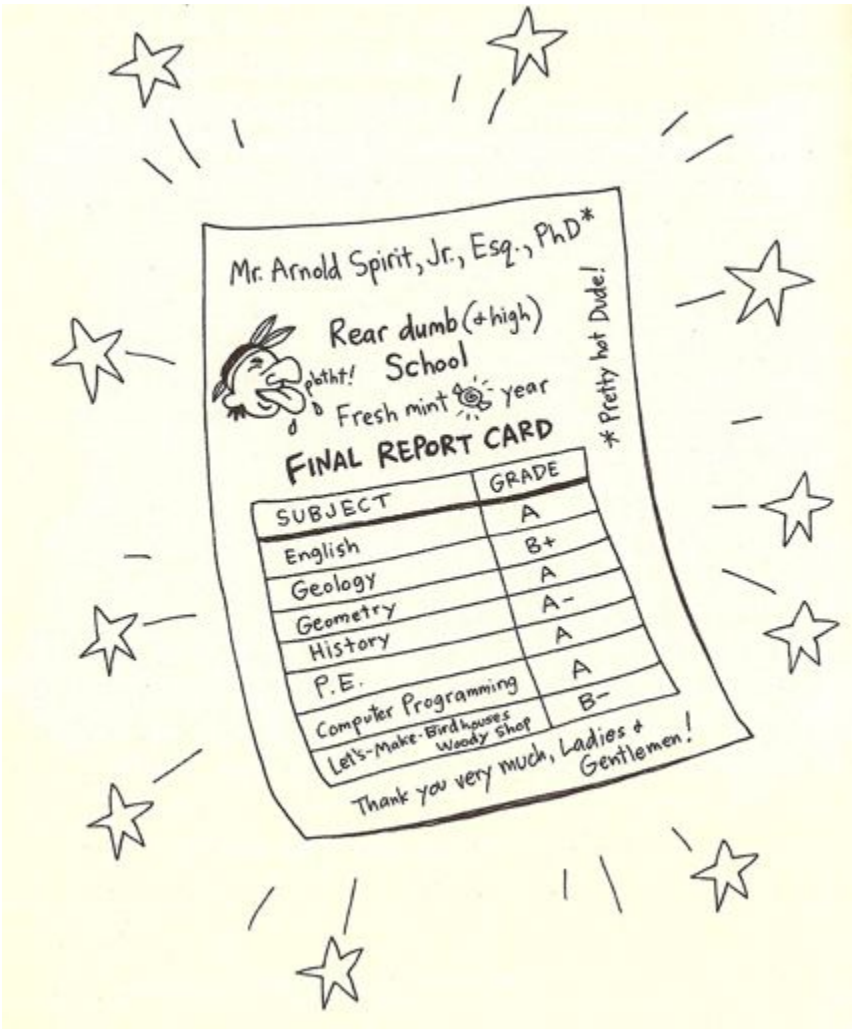 Mr. Arnold Spirit, Jr., Esq., PhD*
* Pretty hot Dude!
Rear dumb (+ high)
School
phtht!
Fresh mint year
FINAL REPORT CARD
SUBJECT GRADE
English A
Geology B+
Geometry A
History A-
P.E. A
Computer Programming A
Let's-Make-Birdhouses
Woody Shop B-
Thank you very much, Ladies +
Gentlemen!